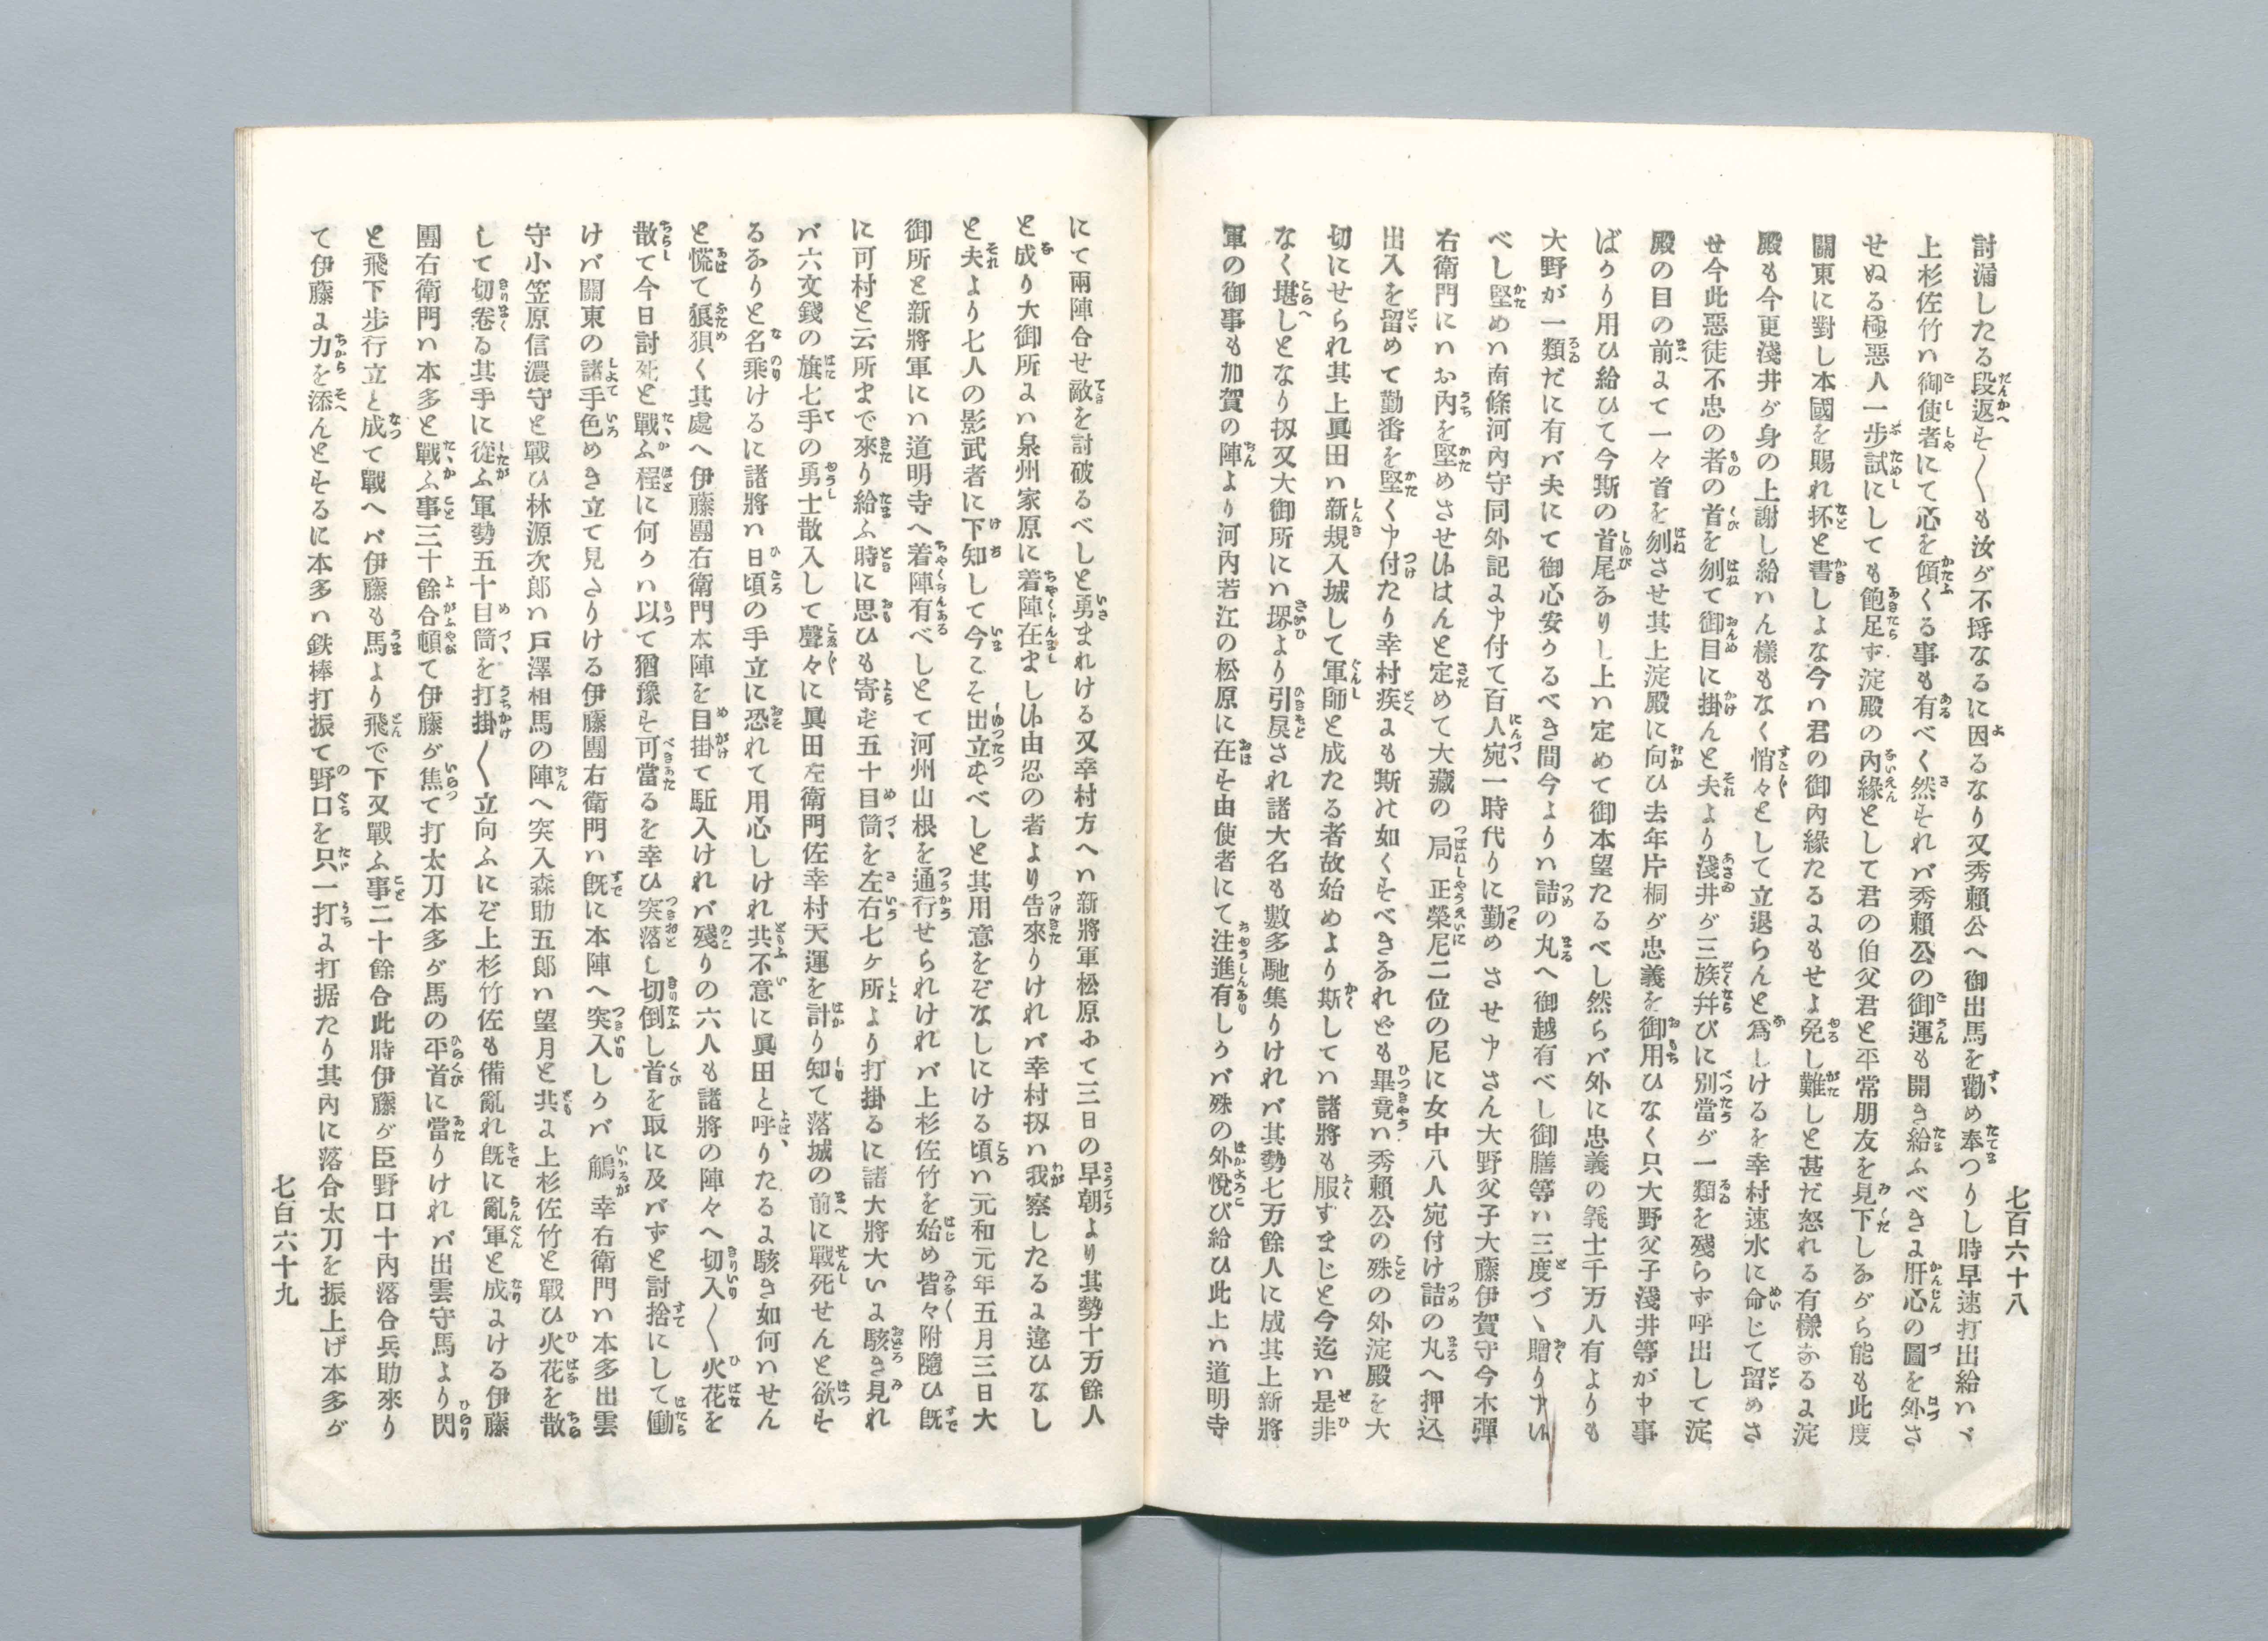 七百六十八
討漏したる段返す〳〵も汝が不埒なるに因るなり又秀賴公へ御出馬を勸め奉つりし時早速打出給ハヾ
上杉佐竹ハ御使者にて心を傾くる事も有べく然すれバ秀賴公の御運も開き給ふべきに肝心の圖を外さ
せぬる極惡人一步試にしても飽足ず淀殿の內緣として君の伯父君と平常朋友を見下しながら能も此度
關東に對し本國を賜れ抔と書しよな今ハ君の御內緣たるにもせよ免し難しと甚だ怒れる有樣なるに淀
殿も今更淺井が身の上謝し給ハん樣もなく悄々として立退らんと爲しけるを幸村速水に命じて留めさ
せ今此惡徒不忠の者の首を刎て御目に掛んと夫より淺井が三族幷びに別當が一類を殘らず呼出して淀
殿の目の前にて一々首を刎させ其上淀殿に向ひ去年片桐が忠義を御用ひなく只大野父子淺井等が申事
ばかり用ひ給ひて今斯の首尾なりし上ハ定めて御本望たるべし然らバ外に忠義の義士千万人有よりも
大野が一類だに有バ夫にて御心安かるべき間今よりハ詰の丸へ御越有べし御膳等ハ三度づヽ贈り申ハ
べし堅めハ南條河內守同外記に申付て百人宛一時代りに勤めさせ申さん大野父子大藤伊賀守今木彈
右衛門にハお內を堅めさせ候はんと定めて大藏の局正榮尼二位の尼に女中八人宛付け詰の丸へ押込
出入を留めて勤番を堅く申付たり幸村疾にも斯の如くすべきなれども畢竟ハ秀賴公の殊の外淀殿を大
切にせられ其上眞田ハ新規入城して軍師と成たる者故始めより斯してハ諸將も服ずまじと今迄ハ是非
なく堪しとなり扨又大御所にハ堺より引戾され諸大名も數多馳集りけれバ其勢七万餘人に成其上新將
軍の御事も加賀の陣より河內若江の松原に在す由使者にて注進有しかバ殊の外悅び給ひ此上ハ道明寺
にて兩陣合せ敵を討破るべしと勇まれける又幸村方へハ新將軍松原にて三日の早朝より其勢十万餘人
と成り大御所にハ泉州家原に着陣在まし候由忍の者より吿來りけれバ幸村扨ハ我察したるに違ひなし
と夫より七人の影武者に下知して今こそ出立すべしと其用意をぞなしにける頃ハ元和元年五月三日大
御所と新將軍にハ道明寺へ着陣有べしとて河州山根を通行せられけれバ上杉佐竹を始め皆々附隨ひ既
に可村と云所まで來り給ふ時に思ひも寄ず五十目筒を左右七ヶ所より打掛るに諸大將大いに駭き見れ
バ六文錢の旗七手の勇士散入して聲々に眞田左衛門佐幸村天運を計り知て落城の前に戰死せんと欲す
るなりと名乘けるに諸將ハ日頃の手立に恐れて用心しけれ共不意に眞田と呼りたるに駭き如何ハせん
と慌て狼狽く其處へ伊藤團右衛門本陣を目掛て駈入けれバ殘りの六人も諸將の陣々へ切入〳〵火花を
散て今日討死と戰ふ程に何かハ以て猶豫す可當るを幸ひ突落し切倒し首を取に及バずと討捨にして働
けバ關東の諸手色めき立て見さりける伊藤團右衛門ハ既に本陣へ突入しかバ鵤幸右衛門ハ本多出雲
守小笠原信濃守と戰ひ林源次郎ハ戶澤相馬の陣へ突入森助五郎ハ望月と共に上杉佐竹と戰ひ火花を散
して切卷る其手に從ふ軍勢五十目筒を打掛〳〵立向ふにぞ上杉竹佐も備亂れ既に亂軍と成にける伊藤
團右衛門ハ本多と戰ふ事三十餘合頓て伊藤が焦て打太刀本多が馬の平首に當りけれバ出雲守馬より閃
と飛下步行立と成て戰へバ伊藤も馬より飛で下又戰ふ事二十餘合此時伊藤が臣野口十內落合兵助來り
て伊藤に力を添んとするに本多ハ鉄棒打振て野口を只一打に打据たり其內に落合太刀を振上げ本多が
七百六十九